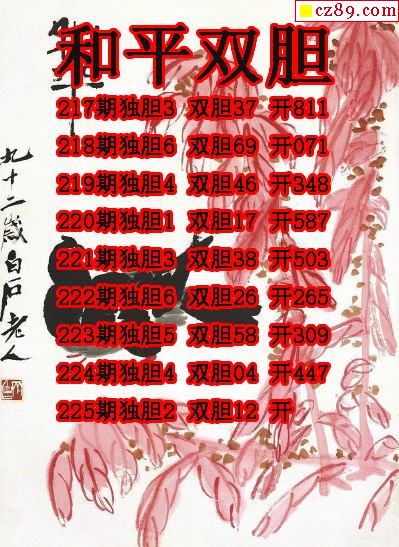 cz89.com
和平双胆
217期独胆3 双胆37 开811
218期独胆6 双胆69 开071
219期独胆4 双胆46 开348
220期独胆1 双胆17 开587
221期独胆3 双胆38 开503
222期独胆6 双胆26 开265
223期独胆5 双胆58 开309
224期独胆4 双胆04 开447
225期独胆2 双胆12 开
九十二歲白石老人